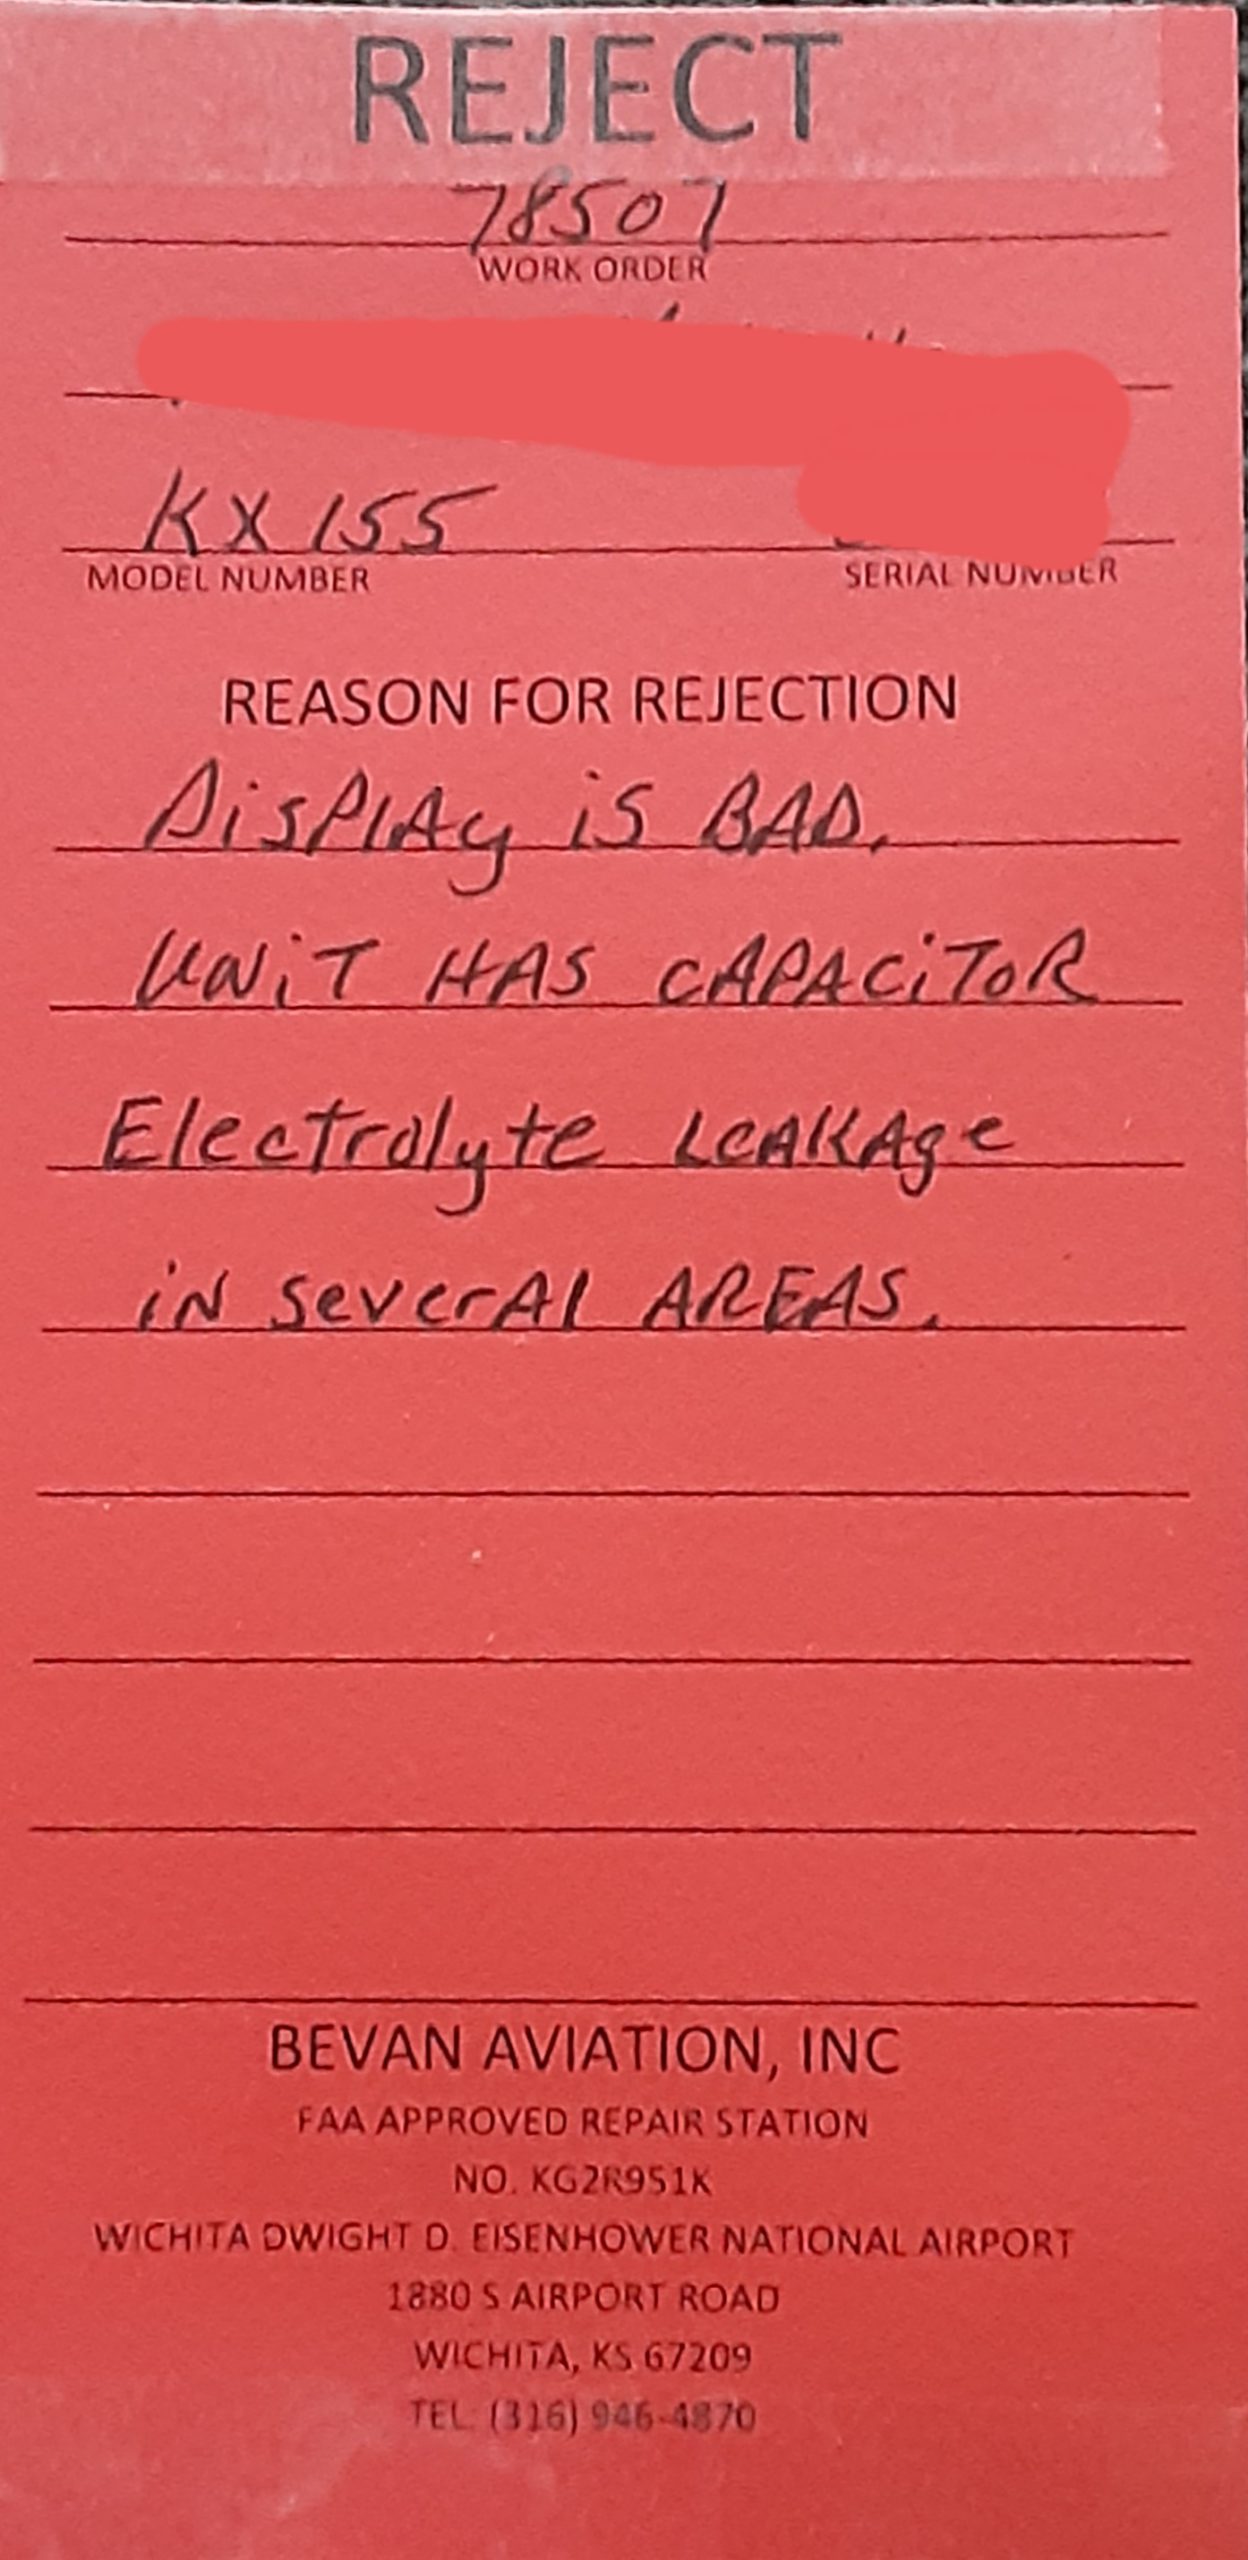 REJECT
78507
WORK ORDER
KX 155
MODEL NUMBER SERIAL NUMBER
REASON FOR REJECTION
DiSPlAy iS BAD.
UNiT HAS CAPACiToR
Electrolyte LeAKAge
iN SeverAl AREAS.
BEVAN AVIATION, INC
FAA APPROVED REPAIR STATION
NO. KG2R951K
WICHITA DWIGHT D. EISENHOWER NATIONAL AIRPORT
1880 S AIRPORT ROAD
WICHITA, KS 67209
TEL: (316) 946-4870